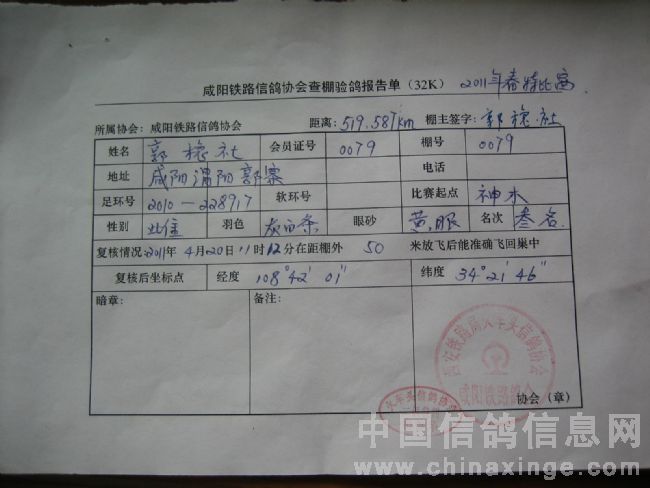 咸阳铁路信鸽协会查棚验鸽报告单（32K） 2011年春特比
所属协会：咸阳铁路信鸽协会 距离：519.587km 棚主签字：郭 社
姓名 郭 社 会员证号 0079 棚号 0079
地址 咸阳渭阳郭寨 电话
足环号 2010－228917 软环号 比赛起点 神木
性别 雄 羽色 灰白条 眼砂 黄眼 名次 叁名
复核情况：2011年4月20日11时12分在距棚外 50 米放飞后能准确飞回巢中
复核后坐标点 经度 108°42′01″ 纬度 34°21′46″
暗章： 备注：
西安铁路局火车头信鸽协会
咸阳铁路鸽会
火车头信鸽协会
协会（章）
中国信鸽信息网
www.chinaxinge.com